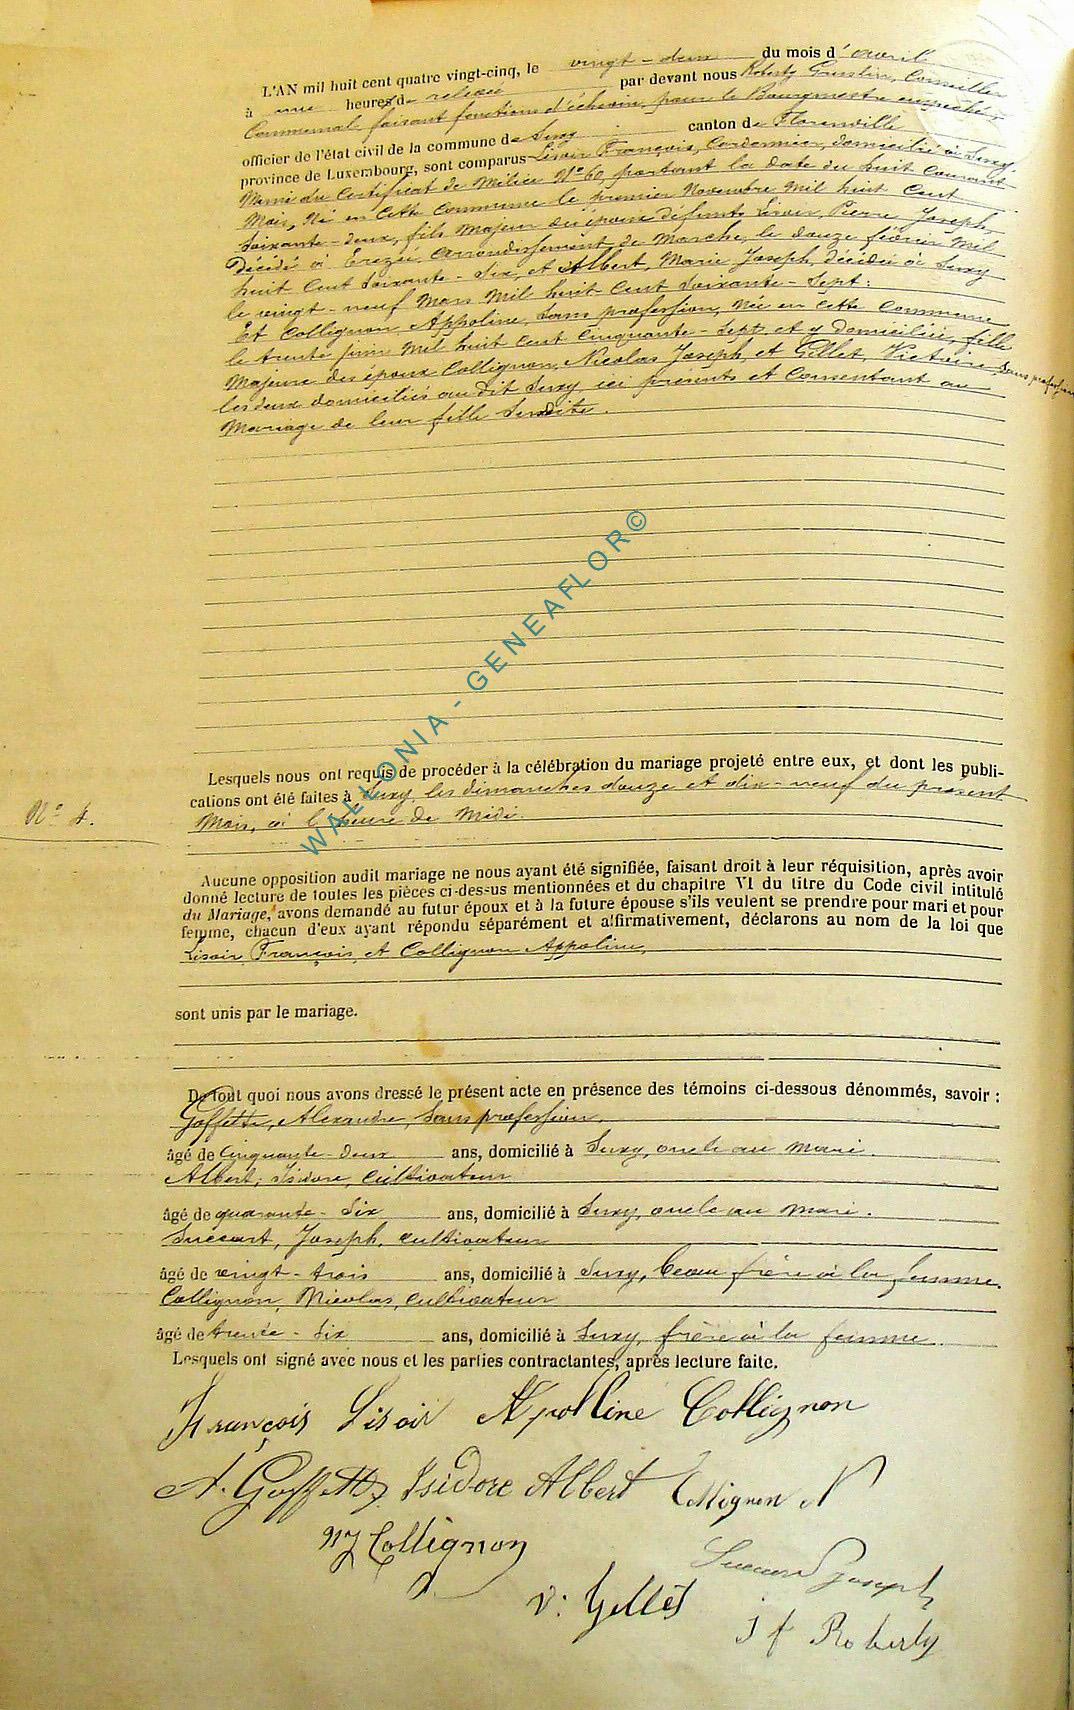 L'AN mil huit cent quatre vingt-cinq, le vingt-deux du mois d'avril
à une heures de relevée par devant nous Roberty Conseiller
Communal faisant fonctions d'échevin, pour le Bourgmestre empêché,
officier de l'état civil de la commune de Suxy canton de Florenville
province de Luxembourg, sont comparus Lisoir François, Cordonnier, domicilié à Suxy
Muni du Certificat de Milice N° 60, portant la date du huit Courant
Mois, Né en cette Commune le premier Novembre mil huit Cent
Soixante-deux, fils Majeur des époux défunts Lisoir, Pierre Joseph,
Décédé à Erezée, arrondissement de Marche, le douze février Mil
huit Cent Soixante-Six, et Albert, Marie Joseph, décédée à Suxy
le vingt-neuf Mars Mil huit-Cent Soixante-Sept:
Et Collignon Appoline, Sans profession, Née en Cette Commune
le trente juin Mil huit Cent Cinquante-Sept, et y domiciliée, fille
Majeure des époux Collignon, Nicolas Joseph, et Gillet, Victoire Sans profession
les deux domiciliés au dit Suxy ici présents et Consentant au
Mariage de leur fille Susdite.
Lesquels nous ont requis de procéder à la célébration du mariage projeté entre eux, et dont les publi-
cations ont été faites à Suxy, les dimanches douze et dix-neuf du présent
Mois, à l'heure de Midi.
N° 4.
Aucune opposition audit mariage ne nous ayant été signifiée, faisant droit à leur réquisition, après avoir
donné lecture de toutes les pièces ci-dessus mentionnées et du chapitre VI du titre du Code civil intitulé
du Mariage, avons demandé au futur époux et à la future épouse s'ils veulent se prendre pour mari et pour
femme, chacun d'eux ayant répondu séparément et affirmativement, déclarons au nom de la loi que
Lisoir, François, et Collignon Appoline,
sont unis par le mariage.
De tout quoi nous avons dressé le présent acte en présence des témoins ci-dessous dénommés, savoir :
Goffette, Alexandre, Sans profession,
âgé de Cinquante-deux ans, domicilié à Suxy, oncle au Mari.
Albert, Isidore, Cultivateur
âgé de quarante-Six ans, domicilié à Suxy, oncle au Mari.
Joseph, Cultivateur
âgé de vingt-trois ans, domicilié à Suxy, beau frère à la femme.
Collignon, Nicolas, Cultivateur
âgé de trente-Six ans, domicilié à Suxy, frère à la femme
Lesquels ont signé avec nous et les parties contractantes, après lecture faite.
François Lisoir Apolline Collignon
A. Goffette Isidore Albert Collignon N
NJ Collignon
Joseph
V. Gillet
J f Roberty
WALLONIA - GENEAFLOR©